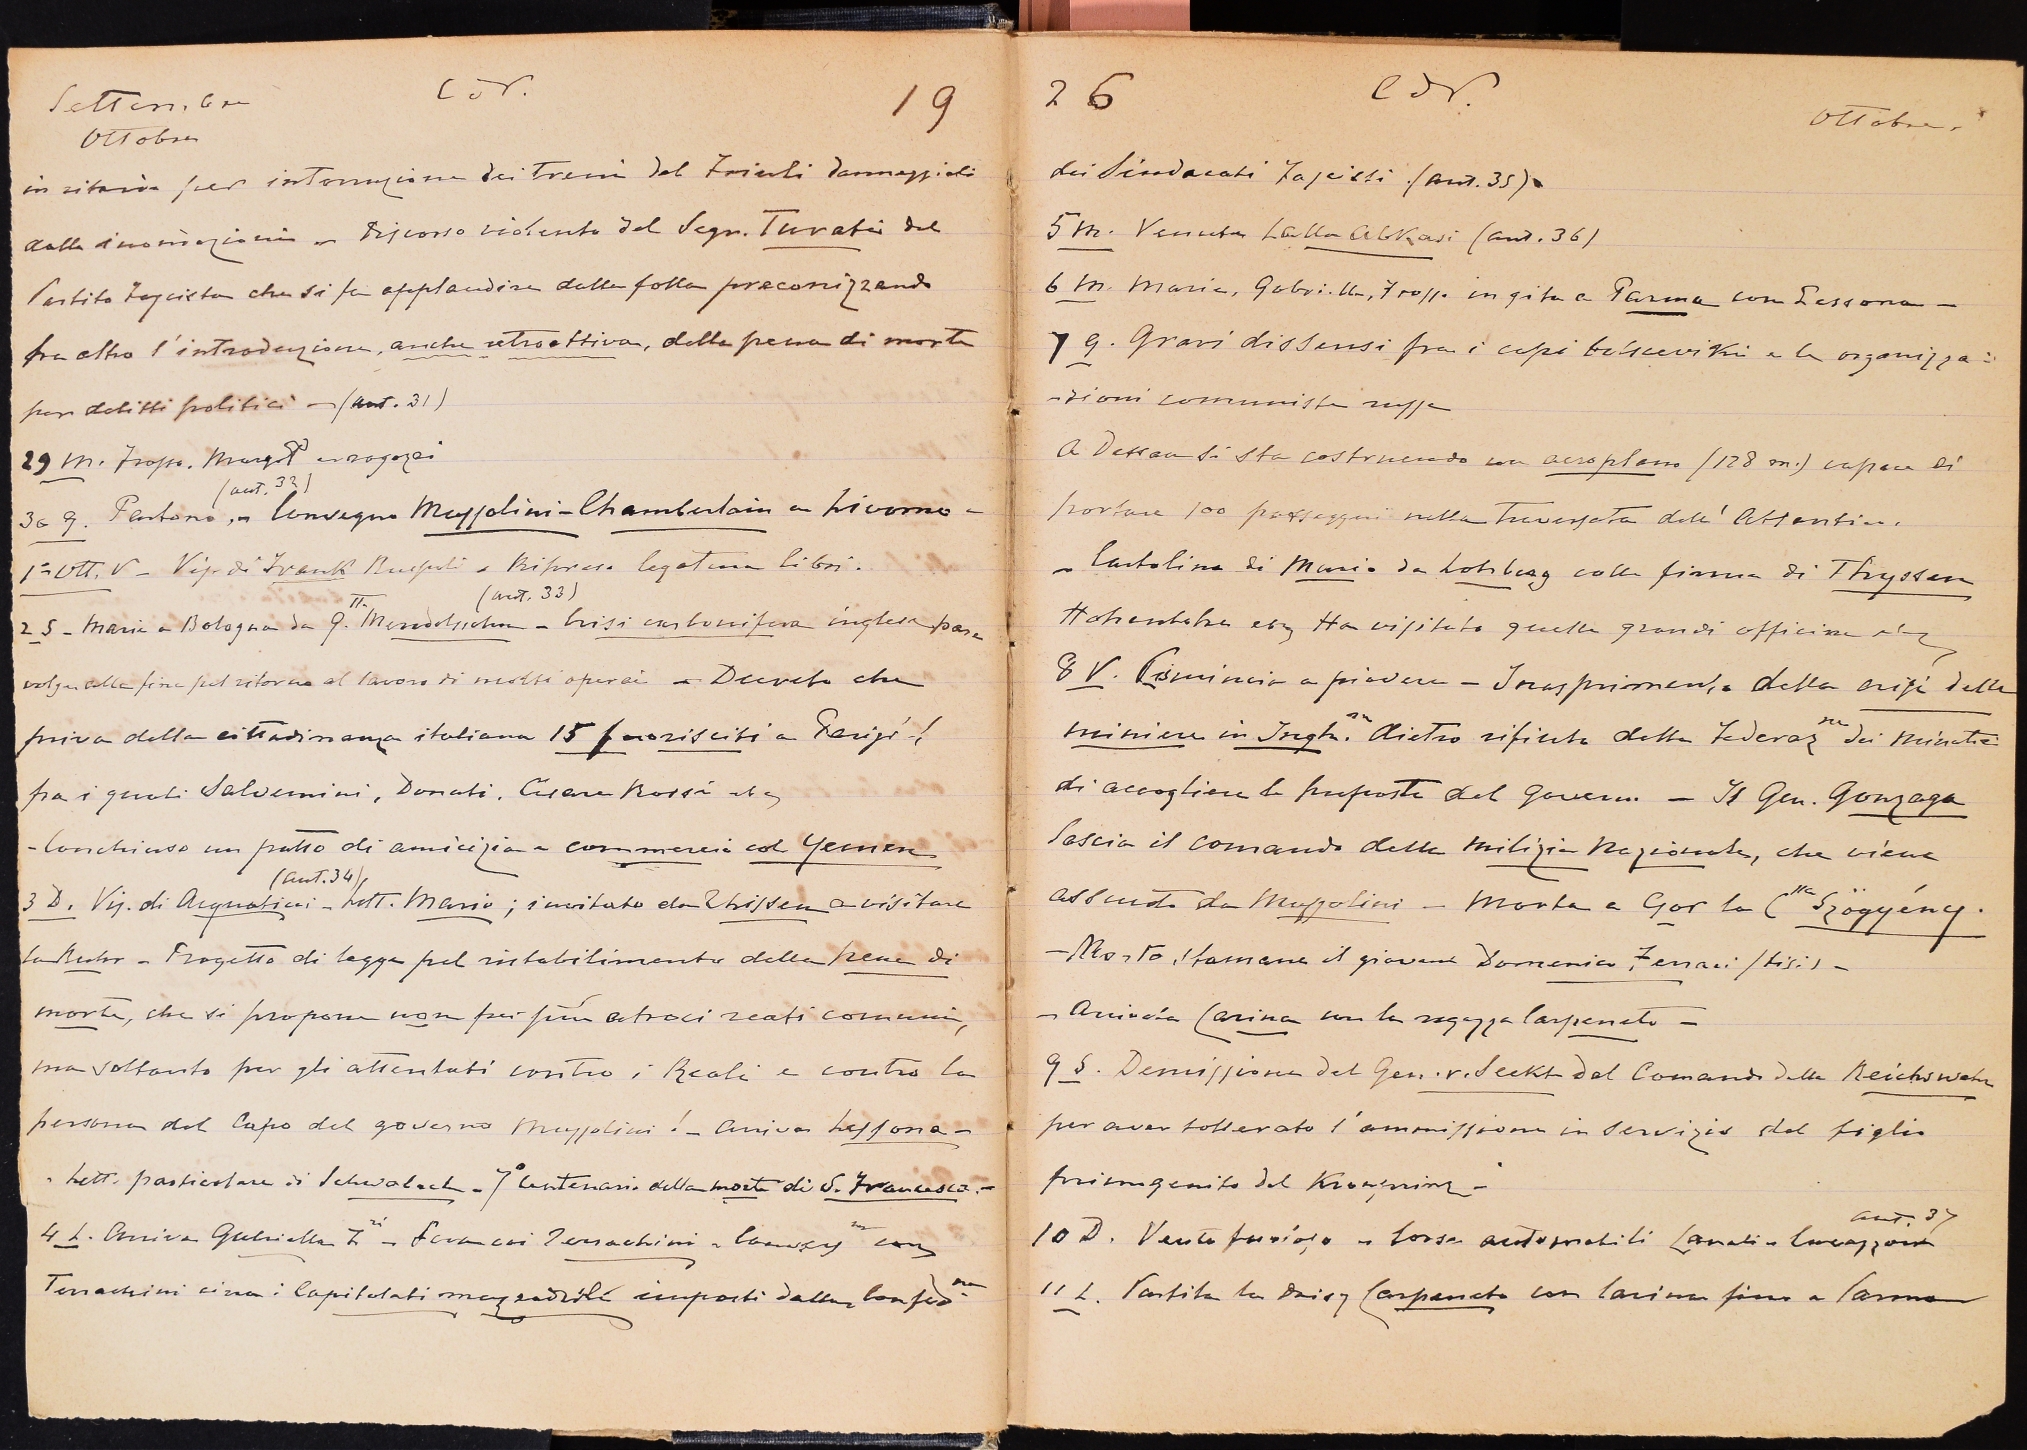 Settembre
Ottobre
CdV.
19
in ritardo per interruzione dei treni del Friuli danneggiati
dalle innondazioni - Discorso violento del Segr. Turati del
Partito Fascista che si fa applaudire dalla folla preconizzando
fra altro l'introduzione, anche retroattiva, della pena di morte
per delitti politici - (ant. 31)
29 M. Margit e ragazzi
(ant. 32)
30 G. Partono - Convegno Mussolini - Chamberlain a Livorno -
1° Ott. V - Vis. di Frank Ruspoli - Ripresa legatura libri.
(ant. 33)
2 S - Maria a Bologna da G. Mendelssohn - Crisi carbonifera inglese pare
volge alla fine pel ritorno al lavoro di molti operai - Decreto che
priva della cittadinanza italiana 15 fuorisciti a Parigi!
fra i quali Salvemini, Donati, Cesare Rossi
- Conchiuso un patto di amicizia e commercio col Yemen
(ant. 34)
3 D. Vis. di - Lett. Mario; invitato da Thissen a visitare
la Ruhr - Progetto di legge pel ristabilimento della pena di
morte, che si propone non per più atroci reati comuni,
ma soltanto per gli attentati contro i Reali e contro la
persona del Capo del governo Mussolini! - Arriva Lessona -
- Lett. particolare di Schwalach - 7° Centenario della morte di S. Francesco. -
4 L. Arriva Gabriella - Terrachini -
Terrachini circa i Capitolati mezzadrili imposti dalla Confed.ne
26
CdV.
Ottobre
dei Sindacati Fascisti. (ant. 35)
5 M. Venuta (ant. 36)
6 M. Maria, Gabriella, in gita a Parma con Lessona -
7 G. Gravi dissensi fra i capi bolscevichi e le organizza-
-zioni comuniste russe
A Dessau si sta costruendo un aeroplano (128 m.) capace di
portare 100 passeggeri nella traversata dell'Atlantico.
- Cartolina di Mario da colla firma di Thyssen
Ha visitato quelle grandi officine
8 V. Comincia a piovere - Inasprimento della crisi delle
miniere in Ingh.ra dietro rifiuto della Federaz.ne dei Minatori
di accogliere le proposte del Governo - Il Gen. Gonzaga
lascia il comando della Milizia Nazionale, che viene
assunto da Mussolini - Morta a la C.ssa Szögyény.
- Morto stamane il giovane Domenico Ferrari (tisi) -
- Arrivata Carina con la ragazza Carpeneto -
9 S. Demissione del Gen. v. Seekt dal Comando della Reichswehr
per aver tollerato l'ammissione in servizio del figlio
primogenito del Kronprinz -
ant. 37
10 D. Vento furioso - Corse automobili
11 L. Partita la Daisy Carpeneto con Carina fino a Parma